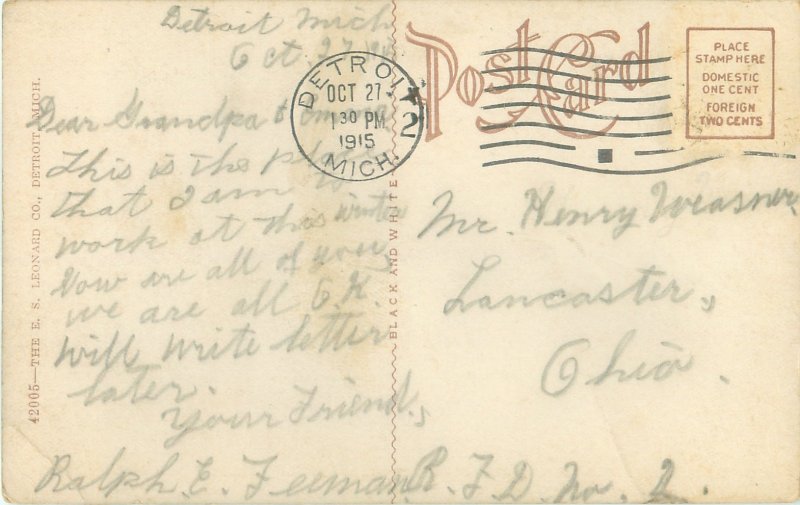 Detroit Mich
Oct 27
Dear Grandpa
This is the place
that I am to
work at this winter
How are all of you
we are all O.K.
will write letter
later.
Your Friend,
Ralph E.
42005—THE E. S. LEONARD CO., DETROIT, MICH.
BLACK AND WHITE
Post Card
DETROIT
OCT 27
130 PM
1915
MICH.
2
PLACE
STAMP HERE
DOMESTIC
ONE CENT
FOREIGN
TWO CENTS
Mr. Henry
Lancaster,
Ohio.
R. F. D. No. 2.